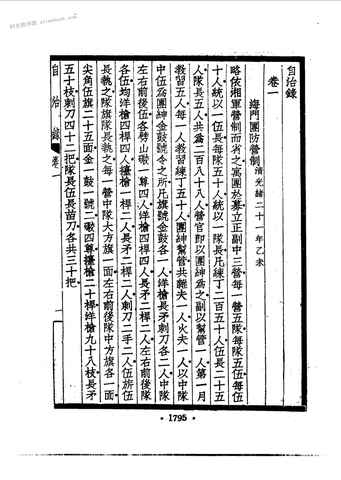 自治錄
卷一
海門團防營制清光緒二十一年乙未
略依湘軍營制而省之寓團於募立正副中三營每一營五隊每伍
十人統以一伍長每隊五十人統以一隊長凡練丁二百五十人伍長二十五
人隊長五人共為二百八十八人營官即以團紳為之副以幫管一人第一月
教習五人每一人教習練丁五十人團紳幫管共雜夫一人火夫一人以中隊
中伍為團紳金鼓號令之所凡旗號金鼓各一人洋槍長矛刺刀各二人中隊
左右前後伍各劈山礮一尊四人洋槍四桿四人長矛二桿二人左右前後隊
各伍均洋槍四桿四人擡槍一桿二人長矛二桿二人刺刀二手二人伍旂伍
長執之隊旗隊長執之每一營中隊大方旗一面左右前後隊中方旗各一面
尖角伍旗二十五面金一鼓一號二礮四尊擡槍二十桿洋槍九十八枝長矛
五十枝刺刀四十二把隊長伍長苗刀各共三十把
自治錄 卷一
一
1795